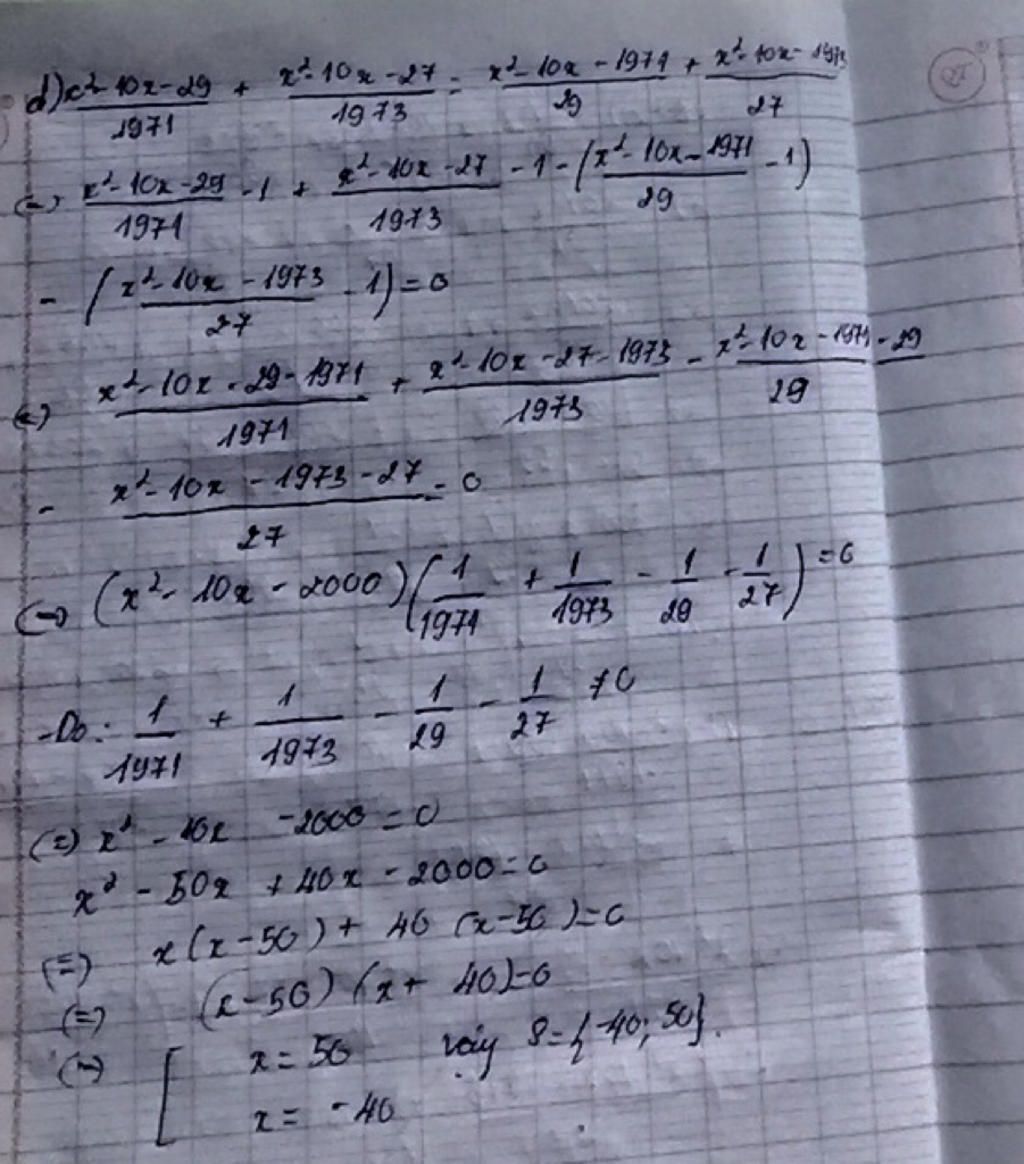 d) x²-10x-29/1971 + x²-10x-27/1973 = x²-10x-1971/29 + x²-10x-1973/27
(=) x²-10x-29/1971 -1 + x²-10x-27/1973 -1 - (x²-10x-1971/29 -1)
- (x²-10x-1973/27 -1) = 0
(=) x²-10x-29-1971/1971 + x²-10x-27-1973/1973 - x²-10x-1971-29/29
- x²-10x-1973-27/27 = 0
(=) (x²-10x-2000)(1/1971 + 1/1973 - 1/29 - 1/27) = 0
-Do: 1/1971 + 1/1973 - 1/29 - 1/27 ≠ 0
(=) x²-10x -2000 = 0
x² - 50x + 40x - 2000 = 0
(=) x(x-50) + 40 (x-50) = 0
(=) (x-50)(x+ 40) = 0
(=) [ x = 50 vậy S = {-40; 50}.
x = -40
25